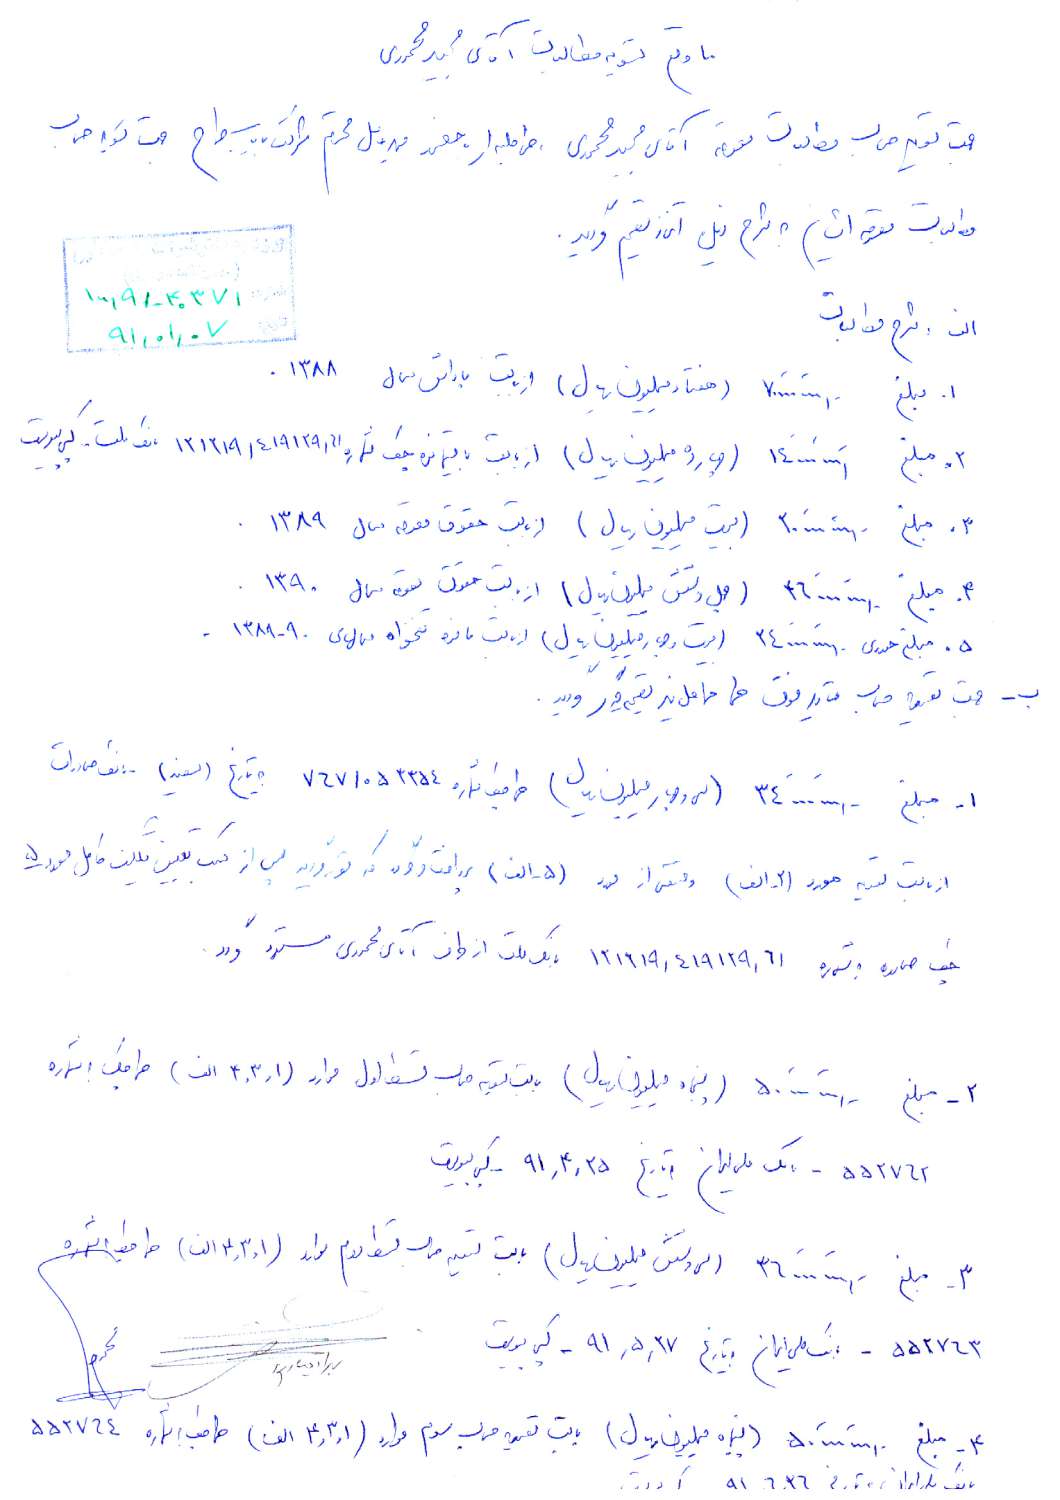 ما وقع تسویه مطالبات آقای مجید محمودی
جهت تسویه حساب مطالبات معوقه آقای مجید محمودی، طی جلسه‌ای با حضور مدیرعامل محترم شرکت جهت تسویه حساب
مطالبات معوقه ایشان به شرح ذیل آغاز تقسیم گردید.
۱۰۰٫۹۱-۴۰۳۷۱
۹۱٫۰۱٫۰۷
الف: شرح مطالبات
۱. مبلغ ۷۰٫۰۰۰٫۰۰۰ (هفتاد میلیون ریال) از بابت پاداش سال ۱۳۸۸.
۲. مبلغ ۱۴٫۰۰۰٫۰۰۰ (چهارده میلیون ریال) از بابت باقیمانده چک شماره ۱۲۱۲۱۹٫۴۱۹۱۲۹٫۶۱ بانک ملت - کپی پیوست
۳. مبلغ ۲۰٫۰۰۰٫۰۰۰ (بیست میلیون ریال) از بابت حقوق معوقه سال ۱۳۸۹.
۴. مبلغ ۴۶٫۰۰۰٫۰۰۰ (چهل و شش میلیون ریال) از بابت حقوق معوقه سال ۱۳۹۰.
۵. مبلغ حدودی ۲۴٫۰۰۰٫۰۰۰ (بیست و چهار میلیون ریال) از بابت مانده تنخواه سالهای ۹۰-۱۳۸۹.
ب - جهت تسویه حساب مقادیر فوق طی مراحل زیر تصمیم‌گیر گردید.
۱- مبلغ ۳۴٫۰۰۰٫۰۰۰ (سی و چهار میلیون ریال) طی چک شماره ۷۶۷/۰۵۲۳۵۴ به تاریخ (سفید) - بانک صادرات
از بابت تسویه مورد (۲-الف) و بخشی از مورد (۵-الف) پرداخت گردد که مقرر گردید پس از کسب تعیین تکلیف کامل مورد ۵
چک صادره به شماره ۱۲۱۲۱۹٫۴۱۹۱۲۹٫۶۱ بانک ملت از طرف آقای محمودی مسترد گردد.
۲- مبلغ ۵۰٫۰۰۰٫۰۰۰ (پنجاه میلیون ریال) بابت تسویه حساب قسط اول موارد (۴٫۳٫۱ الف) طی چک به شماره
۵۵۲۷۶۲ - بانک ملی ایران به تاریخ ۹۱٫۴٫۲۵ - کپی پیوست
۳- مبلغ ۳۶٫۰۰۰٫۰۰۰ (سی و شش میلیون ریال) بابت تسویه حساب قسط دوم موارد (۴٫۳٫۱ الف) طی چک به شماره
۵۵۲۷۶۳ - بانک ملی ایران به تاریخ ۹۱٫۵٫۲۷ - کپی پیوست
۴- مبلغ ۵۰٫۰۰۰٫۰۰۰ (پنجاه میلیون ریال) بابت تسویه حساب سوم موارد (۴٫۳٫۱ الف) طی چک به شماره ۵۵۲۷۶۴
بانک ملی ایران به تاریخ ۹۱٫۶٫۲۶